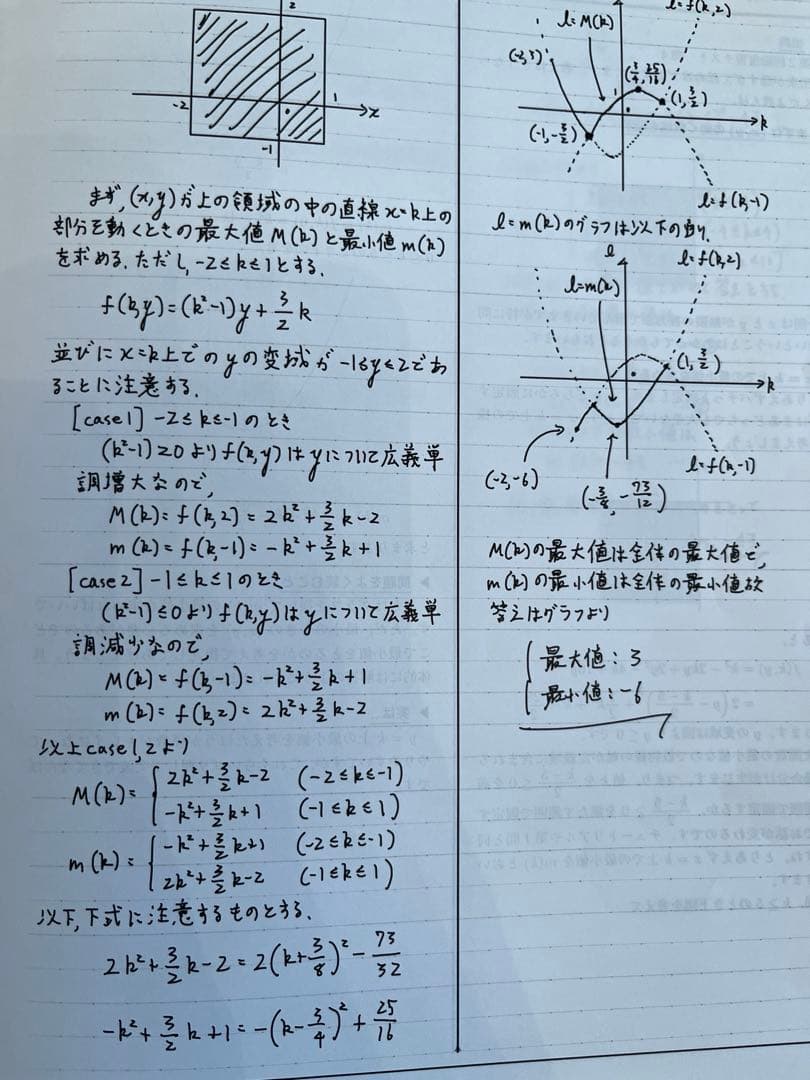 2
-2
1
x
-1
まず,(x,y)が上の領域の中の直線x=k上の
部分を動くときの最大値M(k)と最小値m(k)
を求める.ただし,-2≤k≤1とする.
f(k,y)=(k²-1)y+3/2k
並びにx=k上でのyの変域が-1≤y≤2であ
ることに注意する.
[case1] -2≤k≤-1のとき
(k²-1)≥0よりf(k,y)はyについて広義単
調増大なので,
M(k)=f(k,2)=2k²+3/2k-2
m(k)=f(k,-1)=-k²+3/2k+1
[case2] -1≤k≤1のとき
(k²-1)≤0よりf(k,y)はyについて広義単
調減少なので,
M(k)=f(k,-1)=-k²+3/2k+1
m(k)=f(k,2)=2k²+3/2k-2
以上case1,2より
M(k)={2k²+3/2k-2 (-2≤k≤-1)
-k²+3/2k+1 (-1≤k≤1)
m(k)={-k²+3/2k+1 (-2≤k≤-1)
2k²+3/2k-2 (-1≤k≤1)
以下,下式に注意するものとする.
2k²+3/2k-2=2(k+3/8)²-73/32
-k²+3/2k+1=-(k-3/4)²+25/16
l=f(k,2)
l=M(k)
(-2,3)
(3/4,25/16)
1
(1,3/2)
k
(-1,-3/2)
l=f(k,-1)
l=m(k)のグラフは以下の通り.
l
l=f(k,2)
l=m(k)
(1,3/2)
k
l=f(k,-1)
(-2,-6)
(-3/8,-73/12)
M(k)の最大値は全体の最大値で,
m(k)の最小値は全体の最小値故
答えはグラフより
{最大値:3
最小値:-6